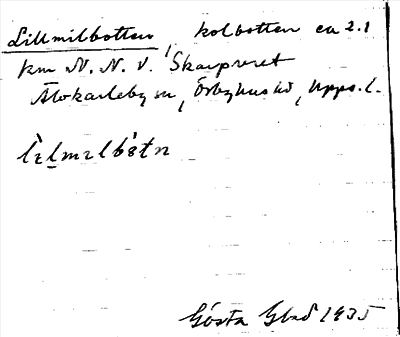 Lillmilbotten, kolbotten ca 2.1
km N. N. V. Skarpret
Älvkarleby sn, Örbyhus hd, Upps. l.
Gösta Glad 1935